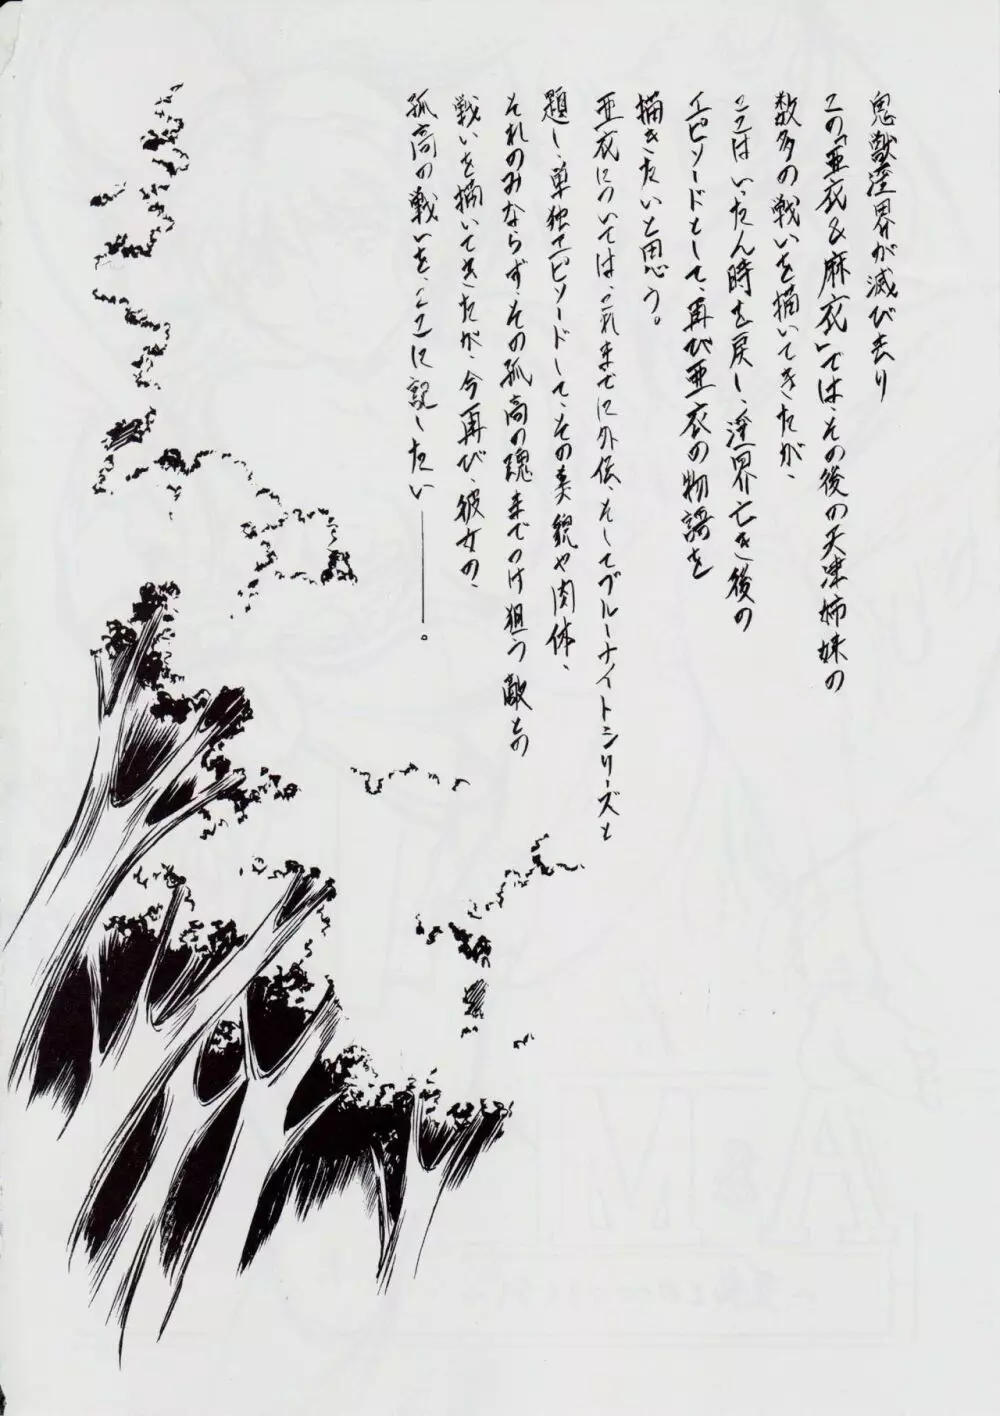 鬼獣淫界が滅び去り
この「亜衣&麻衣」では、その後の天津姉妹の
数多の戦いを描いてきたが、
ここはいったん時を戻し、淫界亡き後の
エピソードとして、再び亜衣の物語を
描きたいと思う。
亜衣については、これまでに外伝、そしてブルーナイトシリーズと
題し、単独エピソードして、その美貌や肉体、
それのみならず、その孤高の魂までつけ狙う敵との
戦いを描いてきたが、今再び、彼女の、
孤高の戦いを、ここに記したい――――。